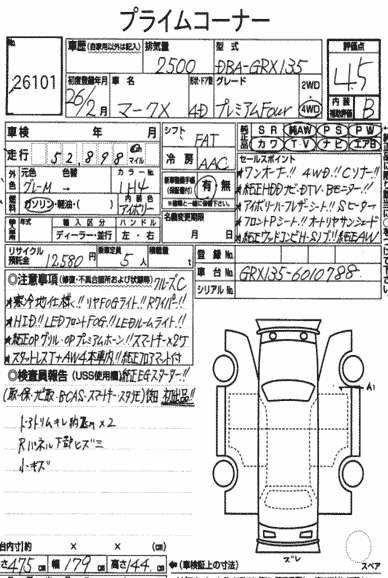 プライムコーナー
No. 26101
車歴 (自家用以外は記入) 排気量 2500 型式 DBA-GRX135 評価点 4.5
初度登録年月 26/2月 車名 マークX 形状・ドア数 4D グレード プレミアムFour 2WD 4WD 内装補助評価 B
車検 年 月 シフト FAT 純正品 SR 純AW PS PW
カワ TV ナビ エアB
走行 52,898 km マイル 冷房 AAC セールスポイント
外色 元色 グレーM 色替 カラーNo. 1H4 *ワンオーナー!! 4WD!! Cソナー!!
ガソリン・軽油・( ) 内装色 アイボリー 有・無 *純正HDDナビ・DTV・Bモニター!!
*アイボリーハーフレザーシート!! Sヒーター
輸入区分 ハンドル 名義変更期限 *フロントPシート!! オートリヤサンシェード
年式 ディーラー・並行 左・右 月 日 *純正ウッドコンビH・Sリブ!! 純正AW
リサイクル預託金 12580円 乗車定員 5人 積載量 登録No.
注意事項 (修復・不具合箇所および状態等) クルーズC 車台No. GRX135-6010788
*寒冷地仕様!! リヤFOGライト!! Rワイパー!! シリアルNo.
*HID!! LEDフロントFOG!! LEDルームライト!!
*純正OPグリル・OPプレミアムホーン!! スマートキー×2ケ
*スタッドレスT+AW4本車内!! 純正フロアマット付
検査員報告 (USS使用欄) 純正EGスターター!!
(取・保・ナビ取・BCAS・スマートキー・スタッドレス) 初出品!!
トラトリムオレ
Rパネル下部ヒズミ
小キズ
A1
ズレ
スペア
荷台内寸 約 × × (cm)
長さ 475 cm 幅 179 cm 高さ 144 cm ←(車検証上の寸法)